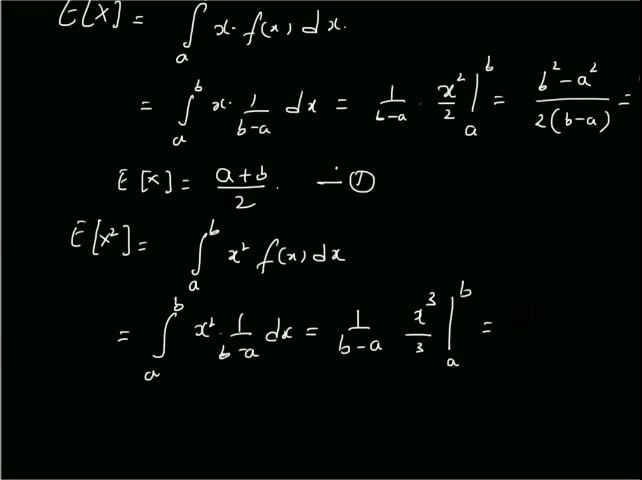 E[X] = ∫ₐ x · f(x) dx.
= ∫ₐᵇ x · 1/(b-a) dx = 1/(b-a) · x²/2 |ₐᵇ = (b² - a²)/(2(b-a)) =
E[X] = (a+b)/2. — ①
E[X²] = ∫ₐᵇ x² f(x) dx
= ∫ₐᵇ x² · 1/(b-a) dx = 1/(b-a) x³/3 |ₐᵇ =